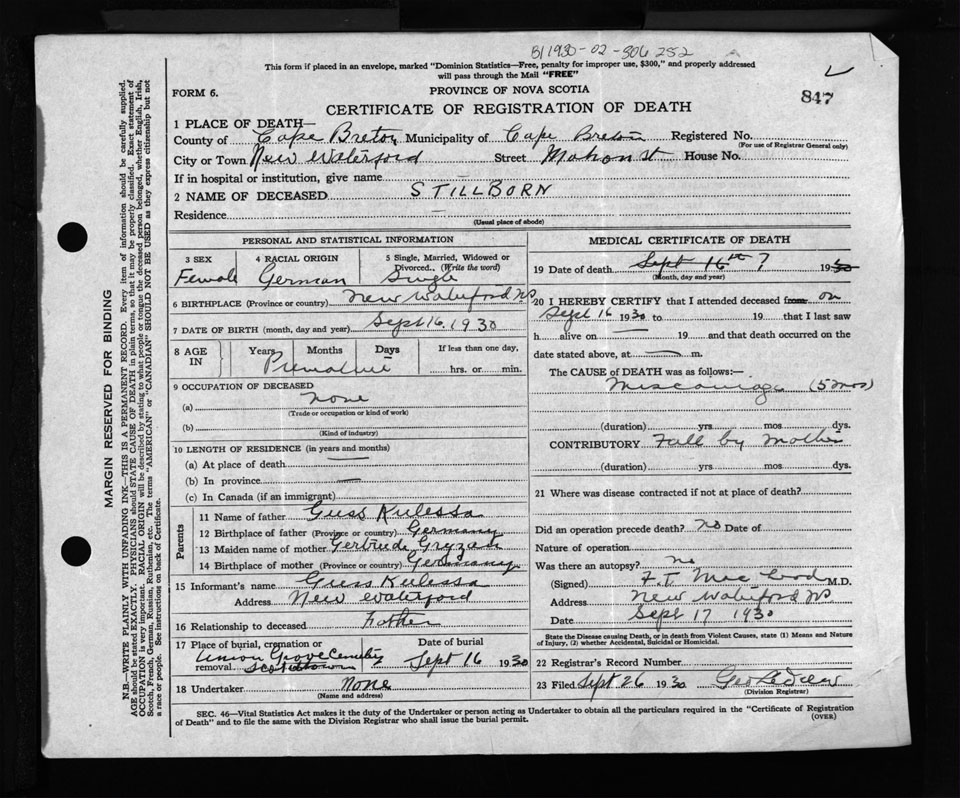 B/1930-02-306 252
This form if placed in an envelope, marked "Dominion Statistics—Free, penalty for improper use, $300," and properly addressed
will pass through the Mail "FREE"
FORM 6.
PROVINCE OF NOVA SCOTIA
847
CERTIFICATE OF REGISTRATION OF DEATH
1 PLACE OF DEATH—
County of Cape Breton Municipality of Cape Breton Registered No.
(For use of Registrar General only)
City or Town New Waterford Street Mahon st House No.
If in hospital or institution, give name
2 NAME OF DECEASED STILLBORN
Residence
(Usual place of abode)
PERSONAL AND STATISTICAL INFORMATION
3 SEX 4 RACIAL ORIGIN 5 Single, Married, Widowed or
Divorced. (Write the word)
Female German Single
6 BIRTHPLACE (Province or country) New Waterford NS
7 DATE OF BIRTH (month, day and year) Sept 16. 1930
8 AGE IN Years Months Days If less than one day,
Premature hrs. or min.
9 OCCUPATION OF DECEASED
(a) none
(Trade or occupation or kind of work)
(b)
(Kind of industry)
10 LENGTH OF RESIDENCE (in years and months)
(a) At place of death
(b) In province
(c) In Canada (if an immigrant)
Parents
11 Name of father Guss Kulessa
12 Birthplace of father (Province or country) Germany
13 Maiden name of mother Gertrude
14 Birthplace of mother (Province or country) Germany
15 Informant's name Guss Kulessa
Address New Waterford
16 Relationship to deceased Father
17 Place of burial, cremation or Date of burial
removal Union Grove Cemetery Scotchtown Sept 16 1930
18 Undertaker None
(Name and address)
MEDICAL CERTIFICATE OF DEATH
19 Date of death Sept 16th 7 1930
(Month, day and year)
20 I HEREBY CERTIFY that I attended deceased from on
Sept 16 1930 to 19 that I last saw
h alive on 19 and that death occurred on the
date stated above, at m.
The CAUSE of DEATH was as follows:—
Miscarriage (5 mos)
(duration) yrs mos dys.
CONTRIBUTORY Fall by Mother
(duration) yrs mos dys.
21 Where was disease contracted if not at place of death?
Did an operation precede death? no Date of
Nature of operation
Was there an autopsy? no
(Signed) F.T. MacLeod M.D.
Address New Waterford NS
Date Sept 17 1930
State the Disease causing Death, or in death from Violent Causes, state (1) Means and Nature
of Injury, (2) whether Accidental, Suicidal or Homicidal.
22 Registrar's Record Number
23 Filed Sept 26 1930 Geo
(Division Registrar)
SEC. 46—Vital Statistics Act makes it the duty of the Undertaker or person acting as Undertaker to obtain all the particulars required in the "Certificate of Registration
of Death" and to file the same with the Division Registrar who shall issue the burial permit.
(OVER)
MARGIN RESERVED FOR BINDING
N.B.—WRITE PLAINLY WITH UNFADING INK—THIS IS A PERMANENT RECORD. Every item of information should be carefully supplied.
AGE should be stated EXACTLY. PHYSICIANS should STATE CAUSE OF DEATH in plain terms, so that it may be properly classified. Exact statement of
OCCUPATION is very important. RACIAL ORIGIN will be described by stating to what people or tongue the deceased person belonged, whether English, Irish,
Scotch, French, German, Russian, Ruthenian, etc. The terms "AMERICAN" or "CANADIAN" SHOULD NOT BE USED as they express citizenship but not
a race or people. See instructions on back of Certificate.